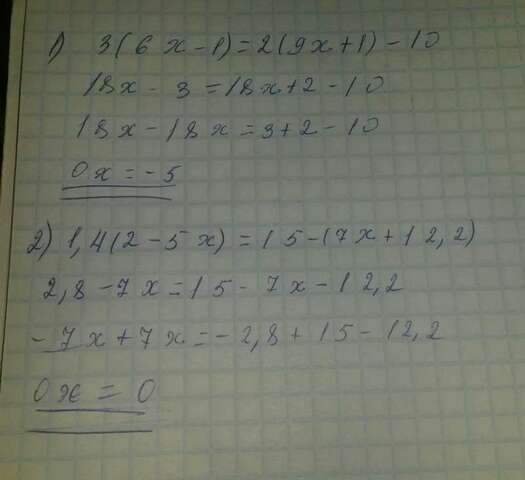 1) 3(6x-1)=2(9x+1)-10
18x-3=18x+2-10
18x-18x=3+2-10
0x=-5
2) 1,4(2-5x)=15-(7x+12,2)
2,8-7x=15-7x-12,2
-7x+7x=-2,8+15-12,2
0x=0